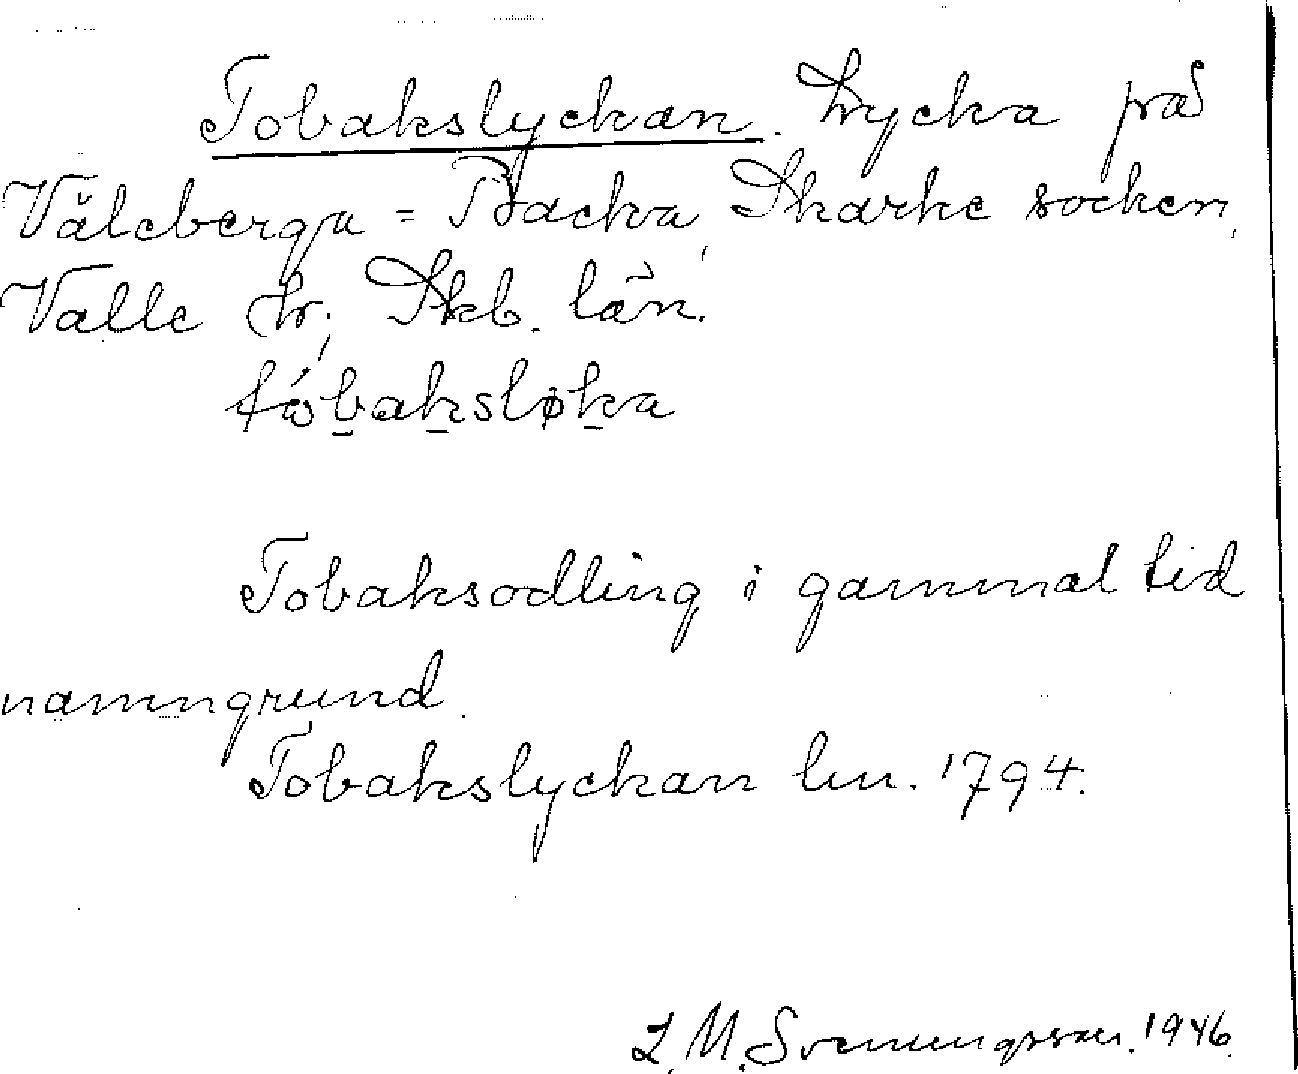 Tobakslyckan. Lycka på
Våleberga - Backa, Skarke socken,
Valle hr, Skb. län.
tóbaksløka
Tobaksodling i gammal tid
namngrund.
Tobakslyckan lm. 1794.
L. M. Svenungsson. 1946.